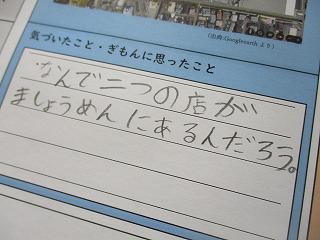 (出典:Googleearth より)
気づいたこと・ぎもんに思ったこと
・なんで二つの店が
ましょうめんにあるんだろう。